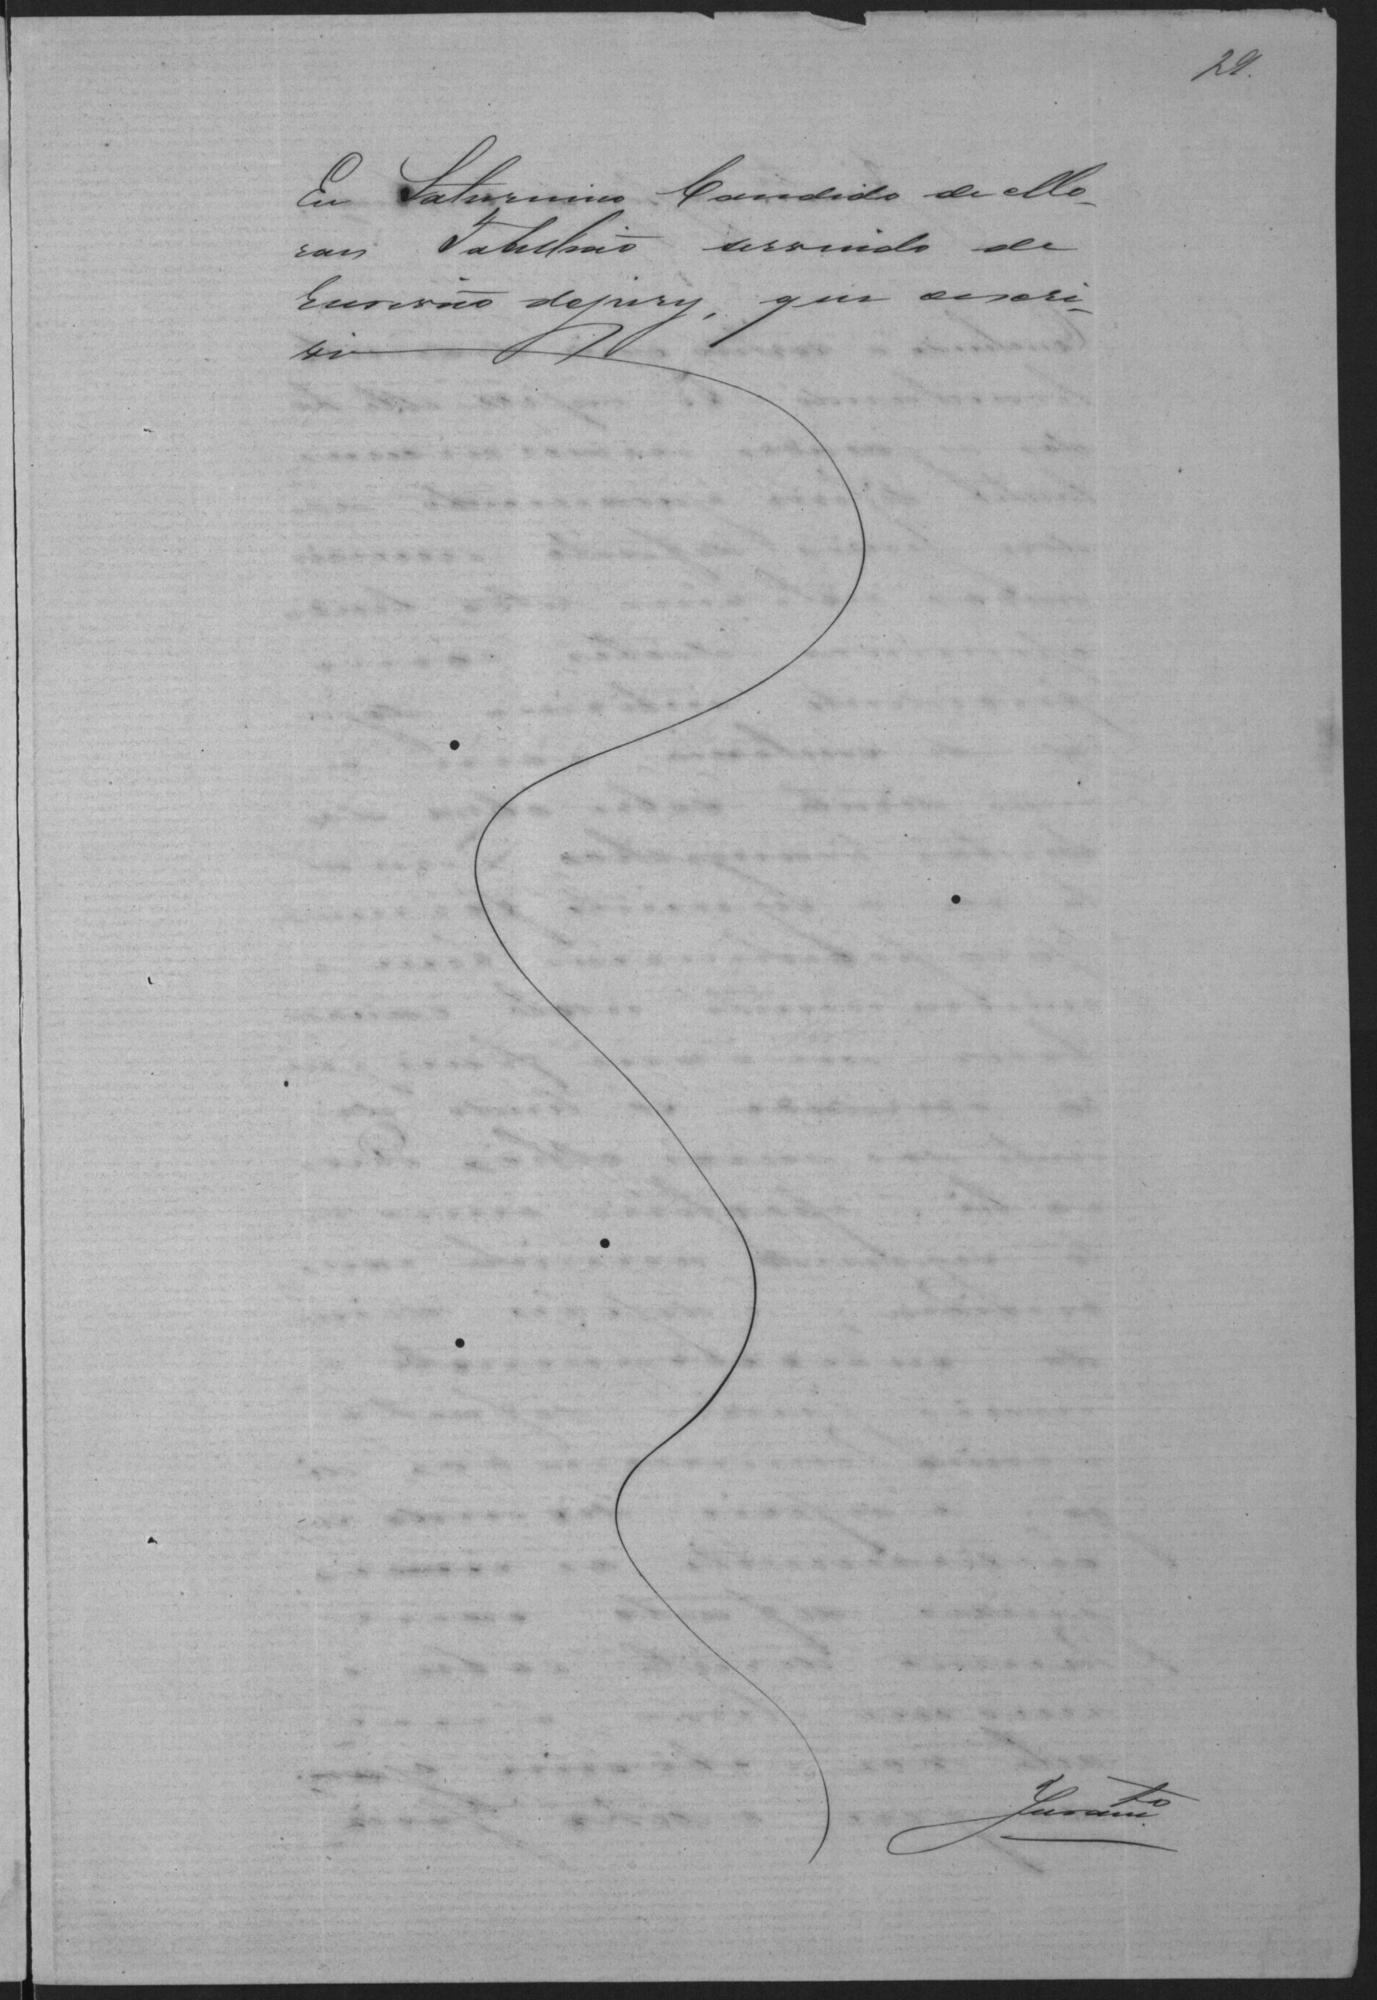 29.
Eu Saturnino Candido de Mo-
raes Tabellião servindo de
Escrivão do jury, que escri-
vi
Juramto.